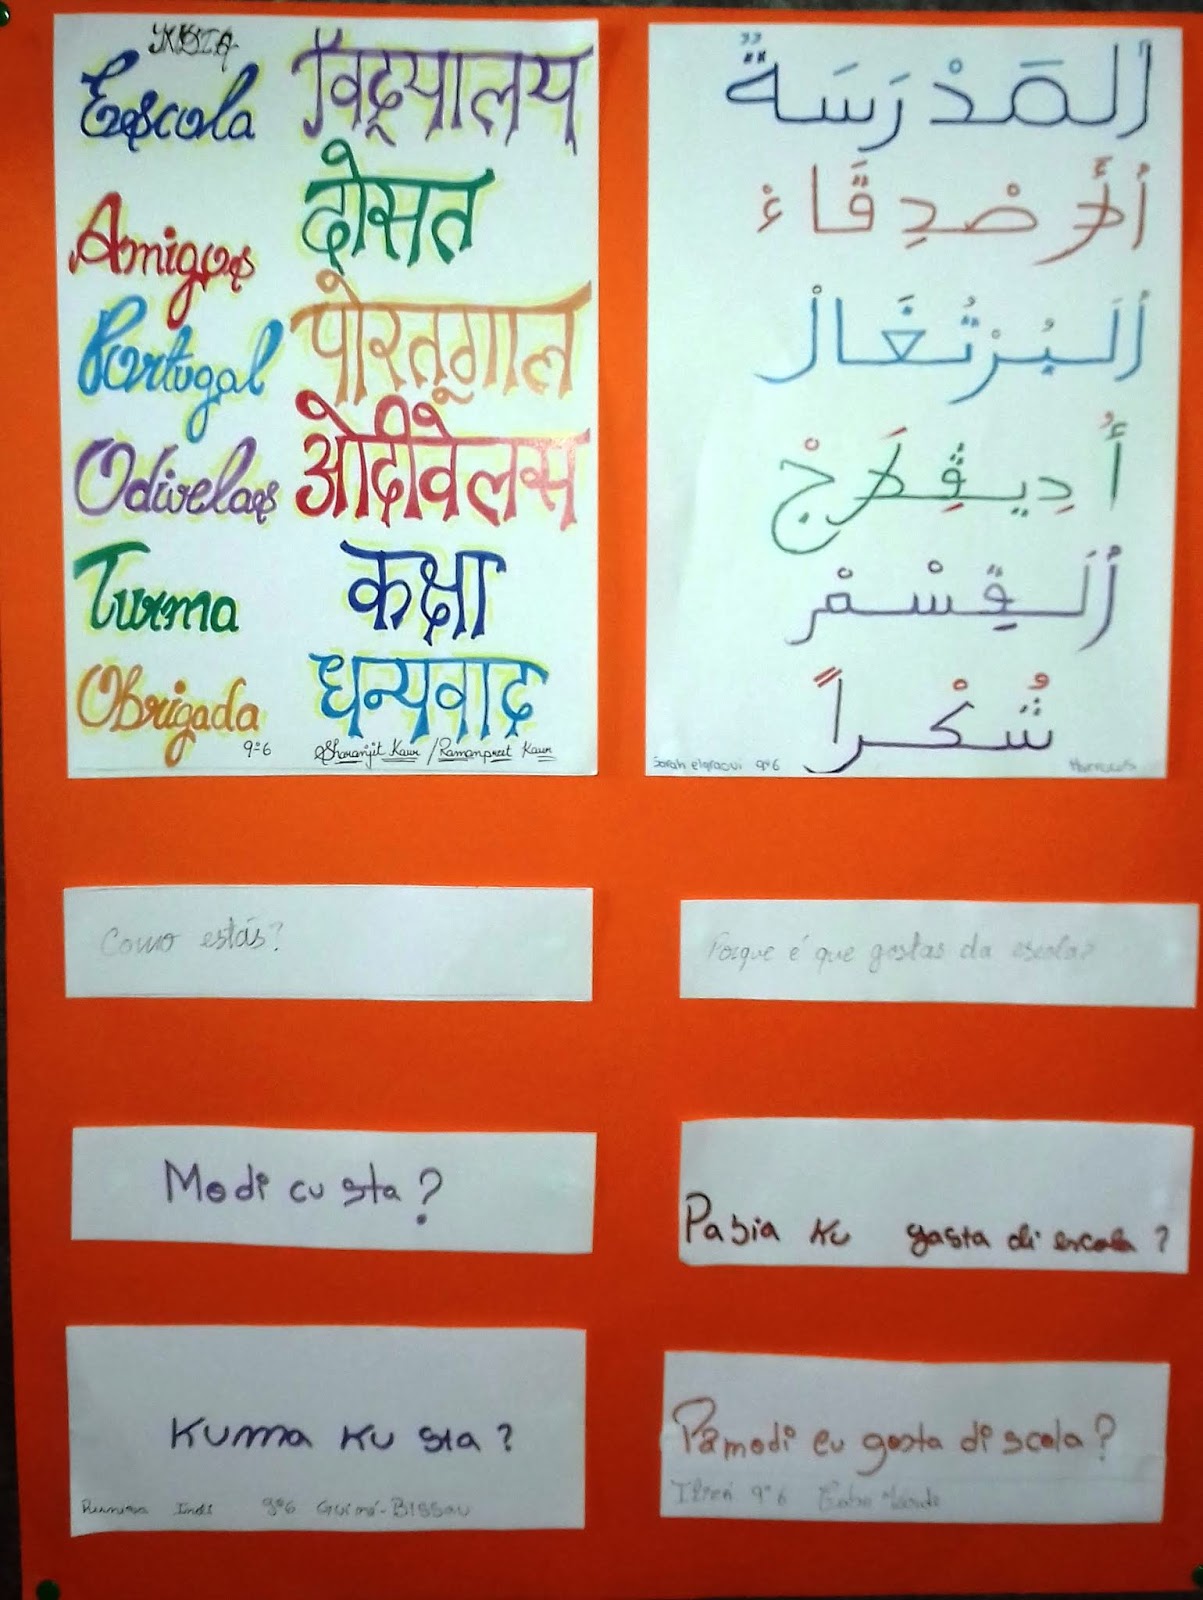 INDIA
Escola विद्यालय्
Amigos दोसत
Portugal पोरतूगाल
Odivelas ओदीवेलस
Turma कक्षा
Obrigada धन्यवाद
9º6 Sharanjit Kaur / Ramanpreet Kaur
اُلمَدْرَسَة
أُصْدِقَاءْ
اُلَبُرْتُغَالْ
أُدِيفِلَاجْ
اُلَقِسْمْ
شُكْراً
Sarah elqraoui 9º6 Marrocos
Como estás?
Porque é que gostas da escola?
Modi cu sta?
Pabia ku gosta di escola?
Kuma ku sta?
Indi 9º6 Guiné-Bissau
Pamodi eu gosta di scola?
9º6 Cabo Verde